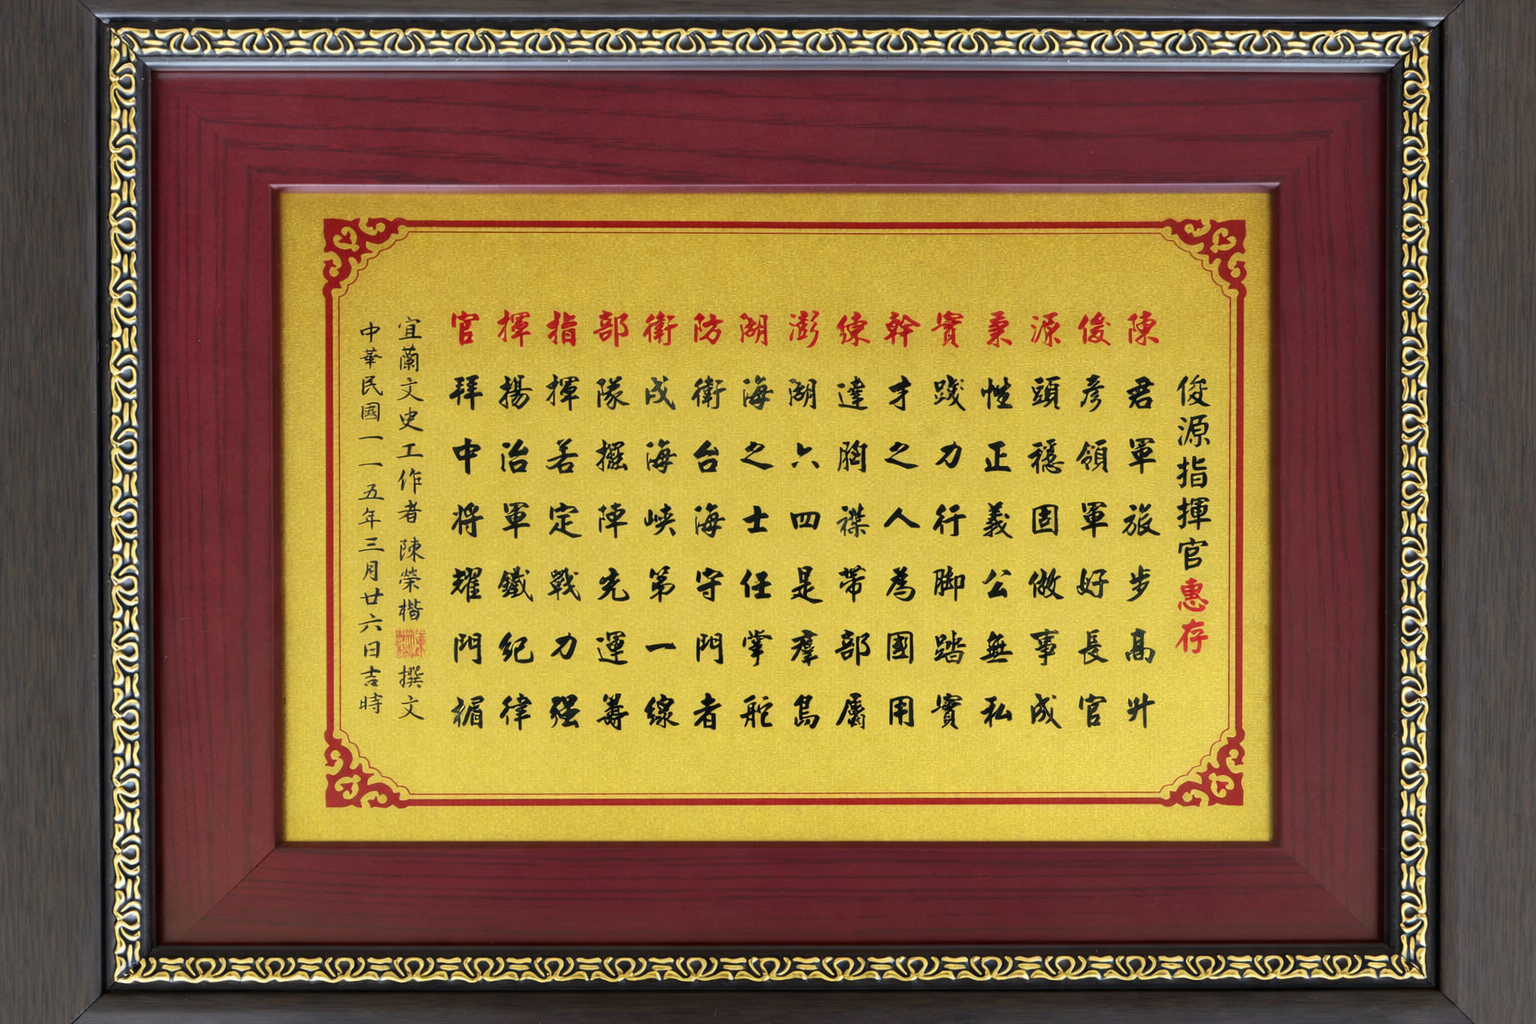 俊源指揮官惠存
陳君軍旅步高升
俊彥領軍好長官
源頭穩固做事成
秉性正義公無私
實踐力行腳踏實
幹才之人為國用
練達胸襟帶部屬
澎湖六四是群島
湖海之士任掌舵
防衛台海守門者
衛戍海峽第一線
部隊擺陣先運籌
指揮若定戰力強
揮揚治軍鐵紀律
官拜中將耀門楣
宜蘭文史工作者陳榮楷撰文
中華民國一一五年三月廿六日吉時